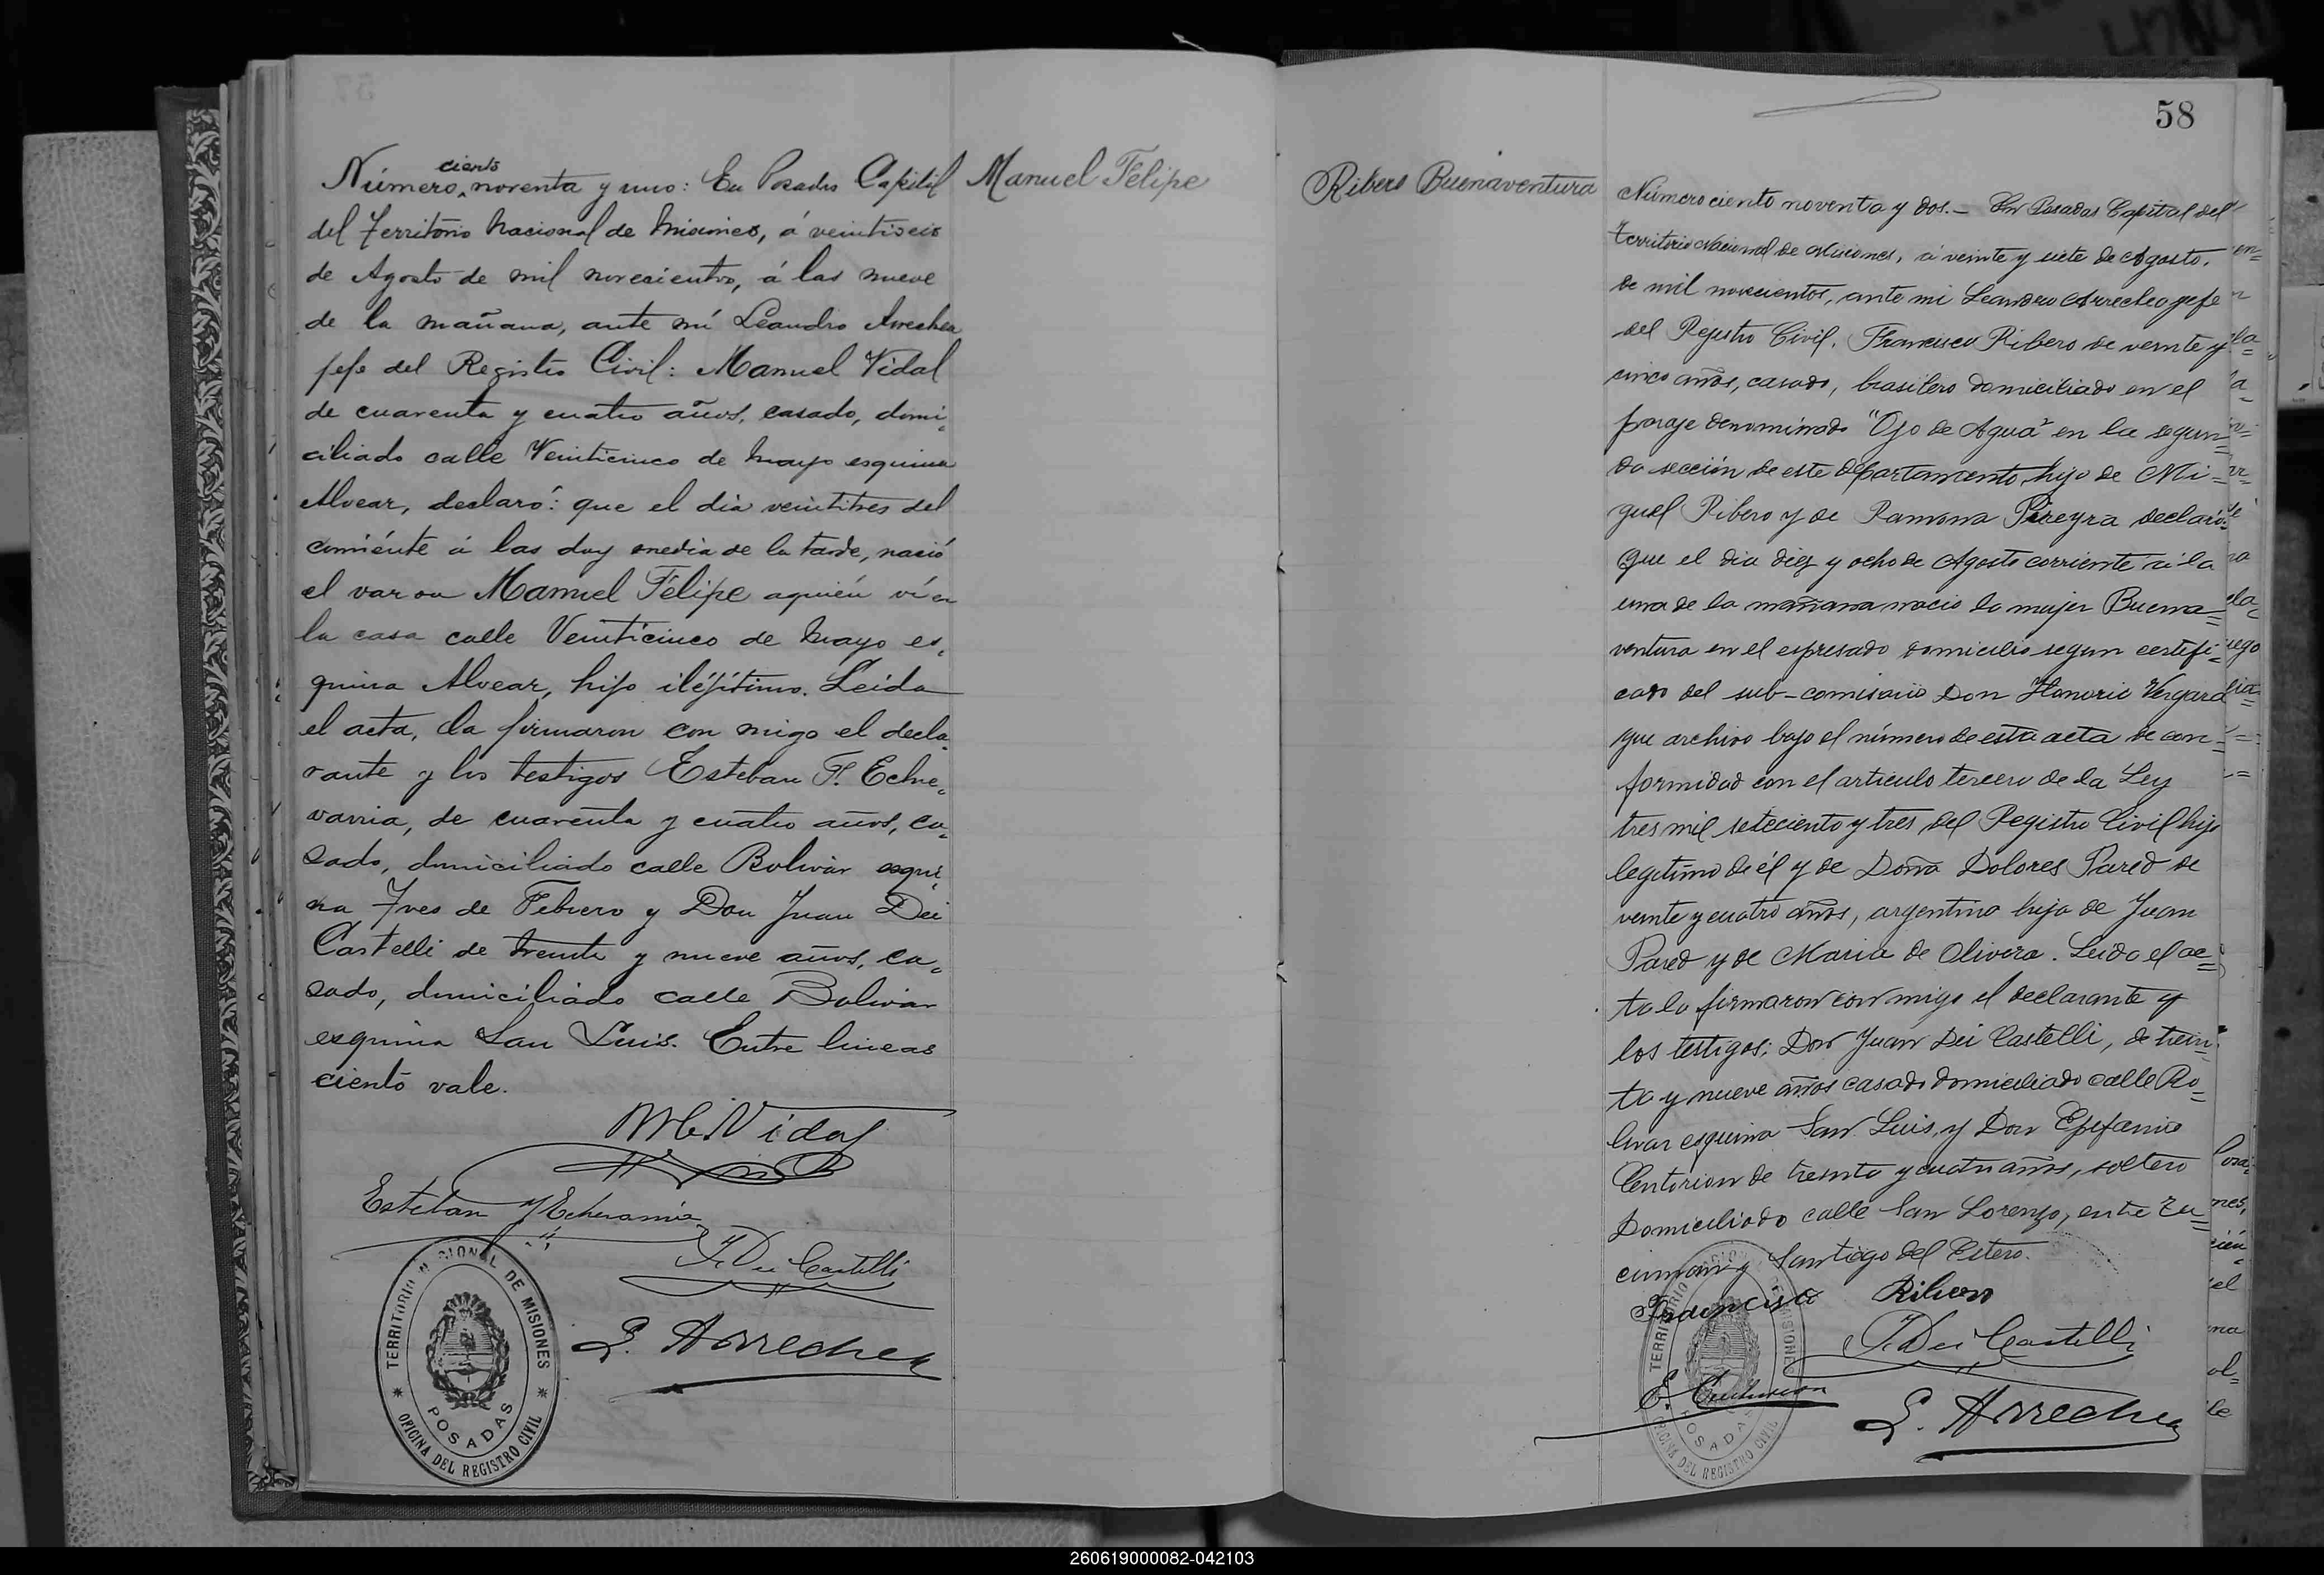 Número ciento noventa y uno: En Posadas Capital
del Territorio Nacional de Misiones, á veintiseis
de Agosto de mil novecientos, á las nueve
de la mañana, ante mí Leandro Arrechea
jefe del Registro Civil: Manuel Vidal
de cuarenta y cuatro años, casado, domi-
ciliado calle Veinticinco de Mayo esquina
Alvear, declaró: que el dia veintitres del
corriente á las dos y media de la tarde, nació
el varon Manuel Felipe aquién ví en
la casa calle Veinticinco de Mayo es-
quina Alvear, hijo ilejítimo. Leida
el acta, la firmaron con migo el decla-
rante y los testigos Esteban F. Eche-
varria, de cuarenta y cuatro años, ca-
sado, domiciliado calle Bolivar esqui-
na Tres de Febrero y Don Juan Dei
Castelli de treinta y nueve años, ca-
sado, domiciliado calle Bolivar
esquina San Luis. Entre lineas
ciento vale.
Vidal
Esteban Echevarria
J. Dei Castelli
L. Arrechea
TERRITORIO NACIONAL DE MISIONES
POSADAS
OFICINA DEL REGISTRO CIVIL
Manuel Felipe
Ribero Buenaventura
58
Número ciento noventa y dos.- En Posadas Capital del
Territorio Nacional de Misiones, á veinte y siete de Agosto.
de mil novecientos, ante mi Leandro Arrechea gefe
del Rejistro Civil. Francisco Ribero de veinte y
cinco años, casado, brasilero domiciliado en el
paraje denominado "Ojo de Agua" en la segun=
da sección de este departamento, hijo de Mi=
guel Ribero y de Ramona Pireyra declaró:
que el dia diez y ocho de Agosto corriente á la
una de la mañana nacio la mujer Buena=
ventura en el espresado domicilio segun certifi=
cado del sub-comisario Don Honorio Vergara
que archivo bajo el número de esta acta de con=
formidad con el articulo tercero de la Ley
tres mil seteciento y tres del Registro Civil hija
legitimo de él y de Doña Dolores Pared de
veinte y cuatro años, argentina hija de Juan
Pared y de Maria de Olivera. Leida el ac=
ta la firmaron con migo el declarante y
los testigos; Don Juan Dei Castelli, de trein-
ta y nueve años casado domiciliado calle Bo=
livar esquina San Luis, y Don Epifanio
Centorion de treinta y cuatro años, soltero
domiciliado calle San Lorenzo, entre Tu=
cuman y Santiago del Estero.
Francisco Ribero
J. Dei Castelli
E. Centurion
L. Arrechea
TERRITORIO NACIONAL DE MISIONES
POSADAS
OFICINA DEL REGISTRO CIVIL
260619000082-042103